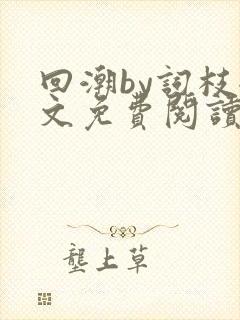 回潮by詞枝
文免費閱讀
壟上草